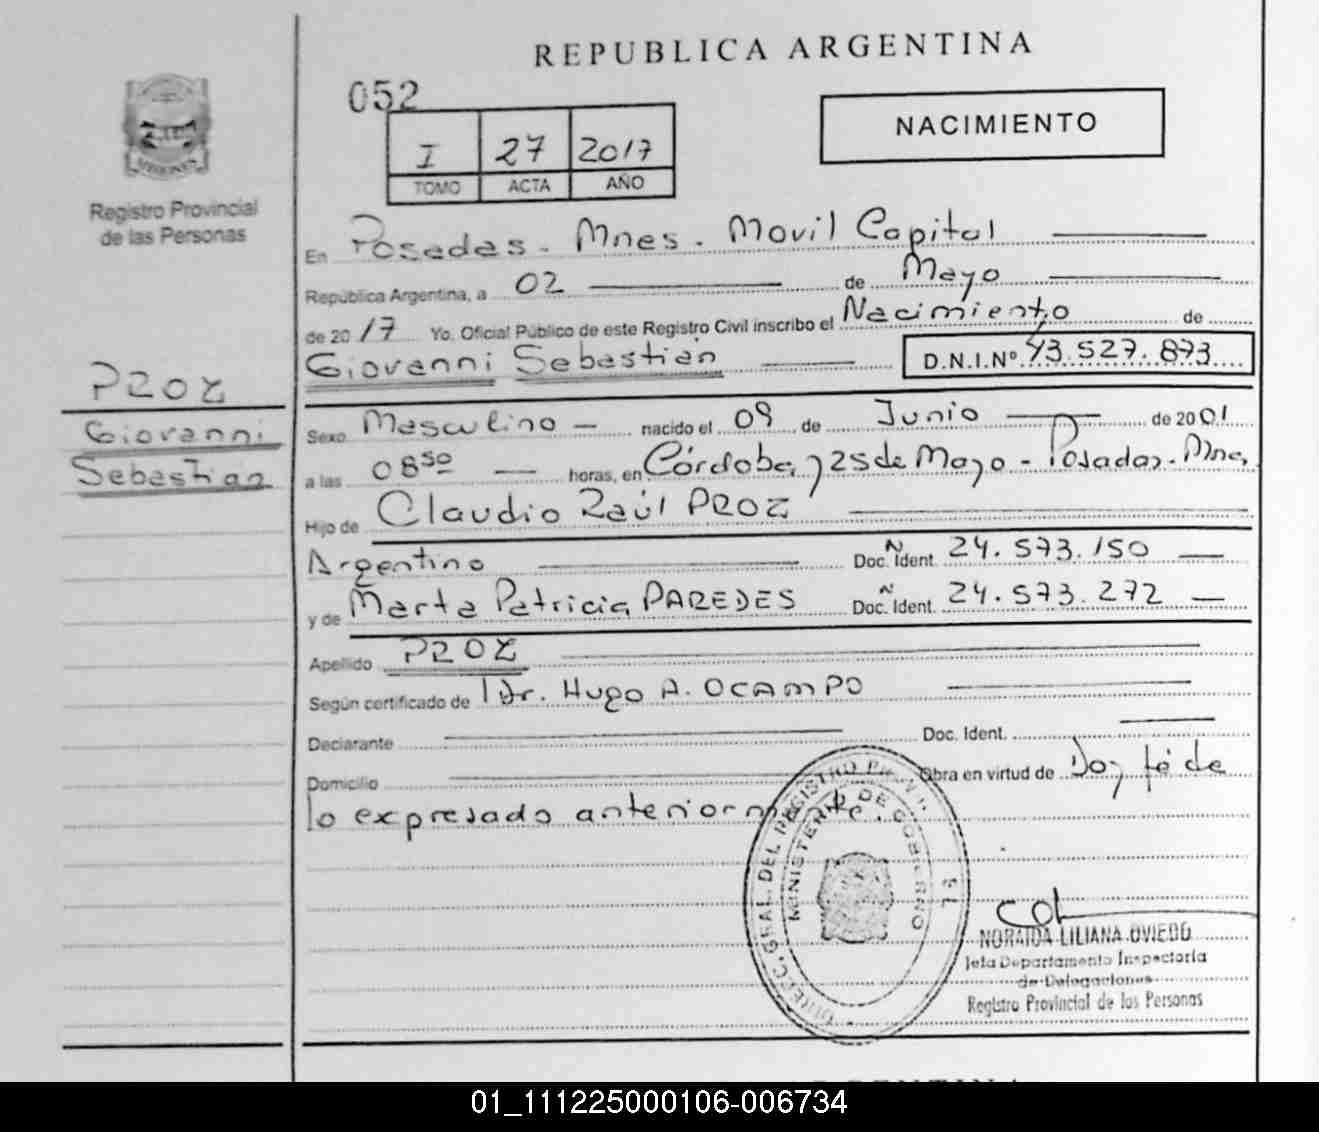 REPUBLICA ARGENTINA
052
NACIMIENTO
I 27 2017
TOMO ACTA AÑO
MISIONES
Registro Provincial
de las Personas
En Posadas. Mnes. Movil Capital
República Argentina, a 02 de Mayo
de 2017 Yo. Oficial Público de este Registro Civil inscribo el Nacimiento de
Giovanni Sebastián D.N.I.Nº 43.527.873
PROZ
Giovanni
Sebastián
Sexo Masculino nacido el 09 de Junio de 2001
a las 08 50 horas, en Córdoba y 25 de Mayo - Posadas. Mnes
Hijo de Claudio Raúl PROZ
Argentino Doc. Ident. Nº 24.573.150
y de Marta Patricia PAREDES Doc. Ident. Nº 24.573.272
Apellido PROZ
Según certificado de Dr. Hugo A. OCAMPO
Declarante Doc. Ident.
Domicilio Obra en virtud de Doy fé de
lo expresado anteriormente.
DIREC. GRAL. DEL REGISTRO PROV.
MINISTERIO DE GOBIERNO
NORAIDA LILIANA OVIEDO
Jefa Departamento Inspectoria
de Delegaciones
Registro Provincial de las Personas
01_111225000106-006734